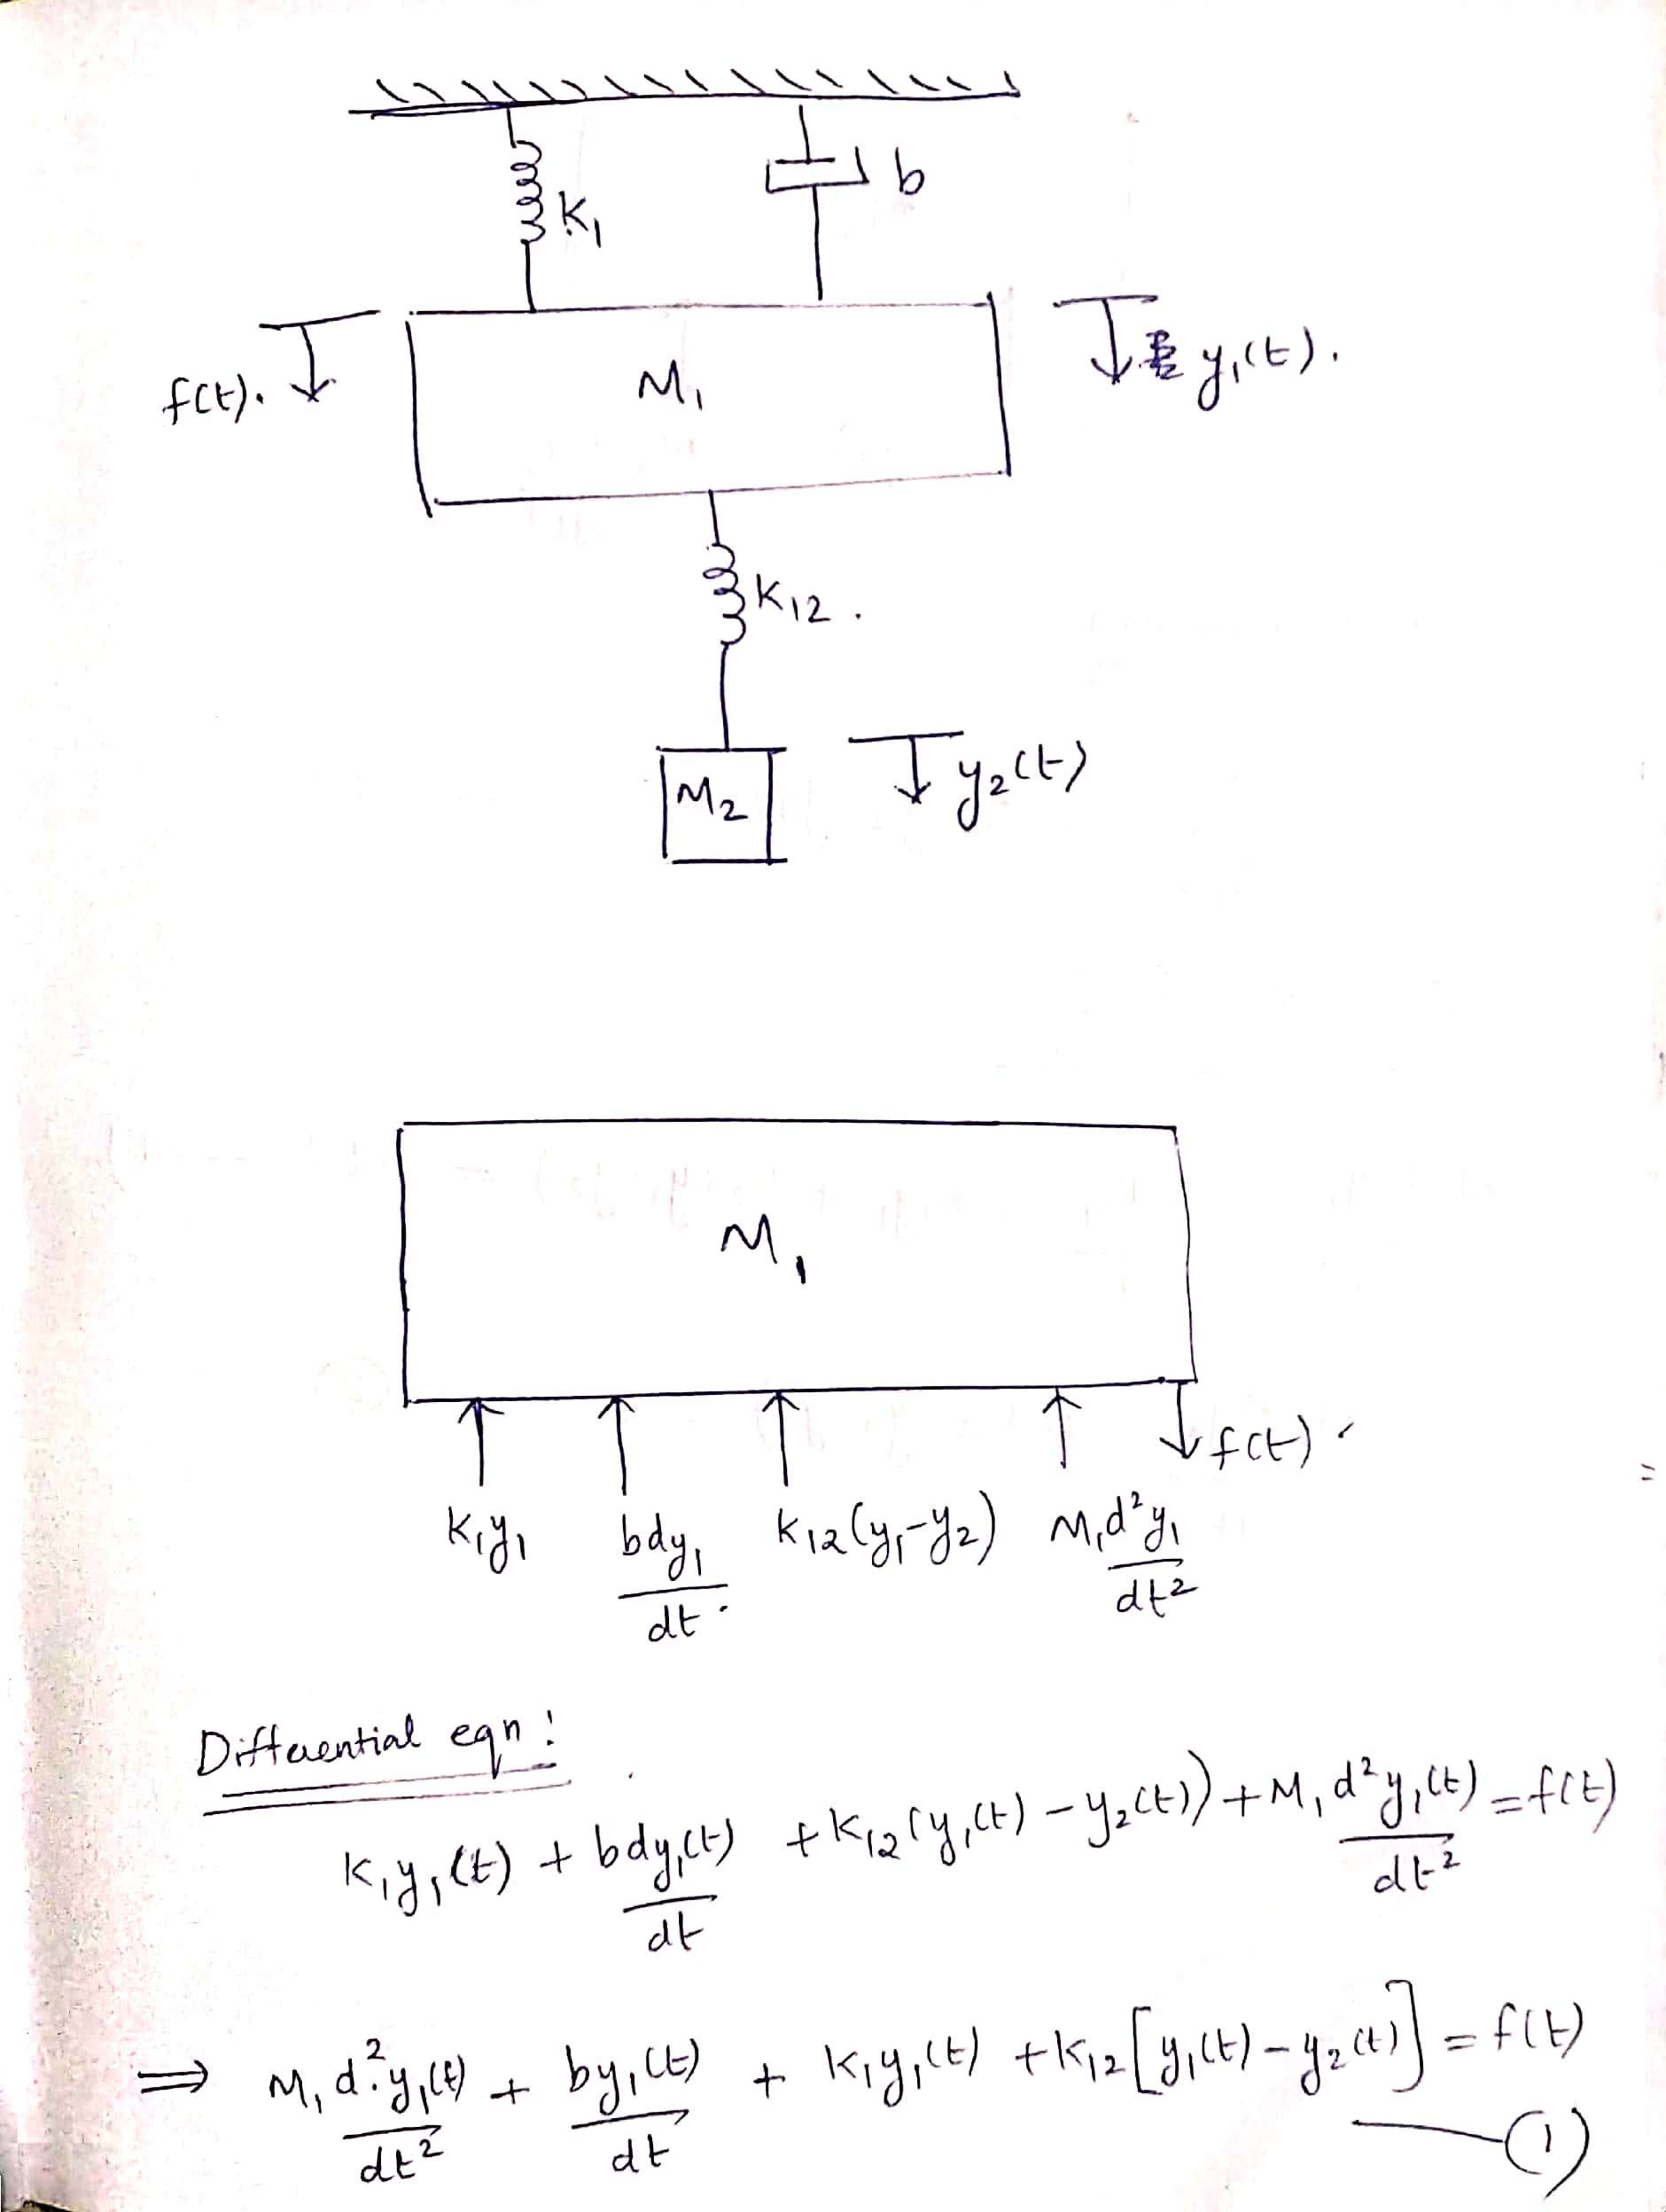 K₁
b
f(t).
M₁
y₁(t).
K₁₂.
M₂
y₂(t)
M₁
f(t).
K₁y₁ bdy₁/dt. K₁₂(y₁-y₂) M₁d²y₁/dt²
Differential eqn:
K₁y₁(t) + bdy₁(t)/dt + K₁₂(y₁(t) - y₂(t)) + M₁d²y₁(t)/dt² = f(t)
⇒ M₁d²y₁(t)/dt² + by₁(t)/dt + K₁y₁(t) + K₁₂[y₁(t) - y₂(t)] = f(t)
— (1)